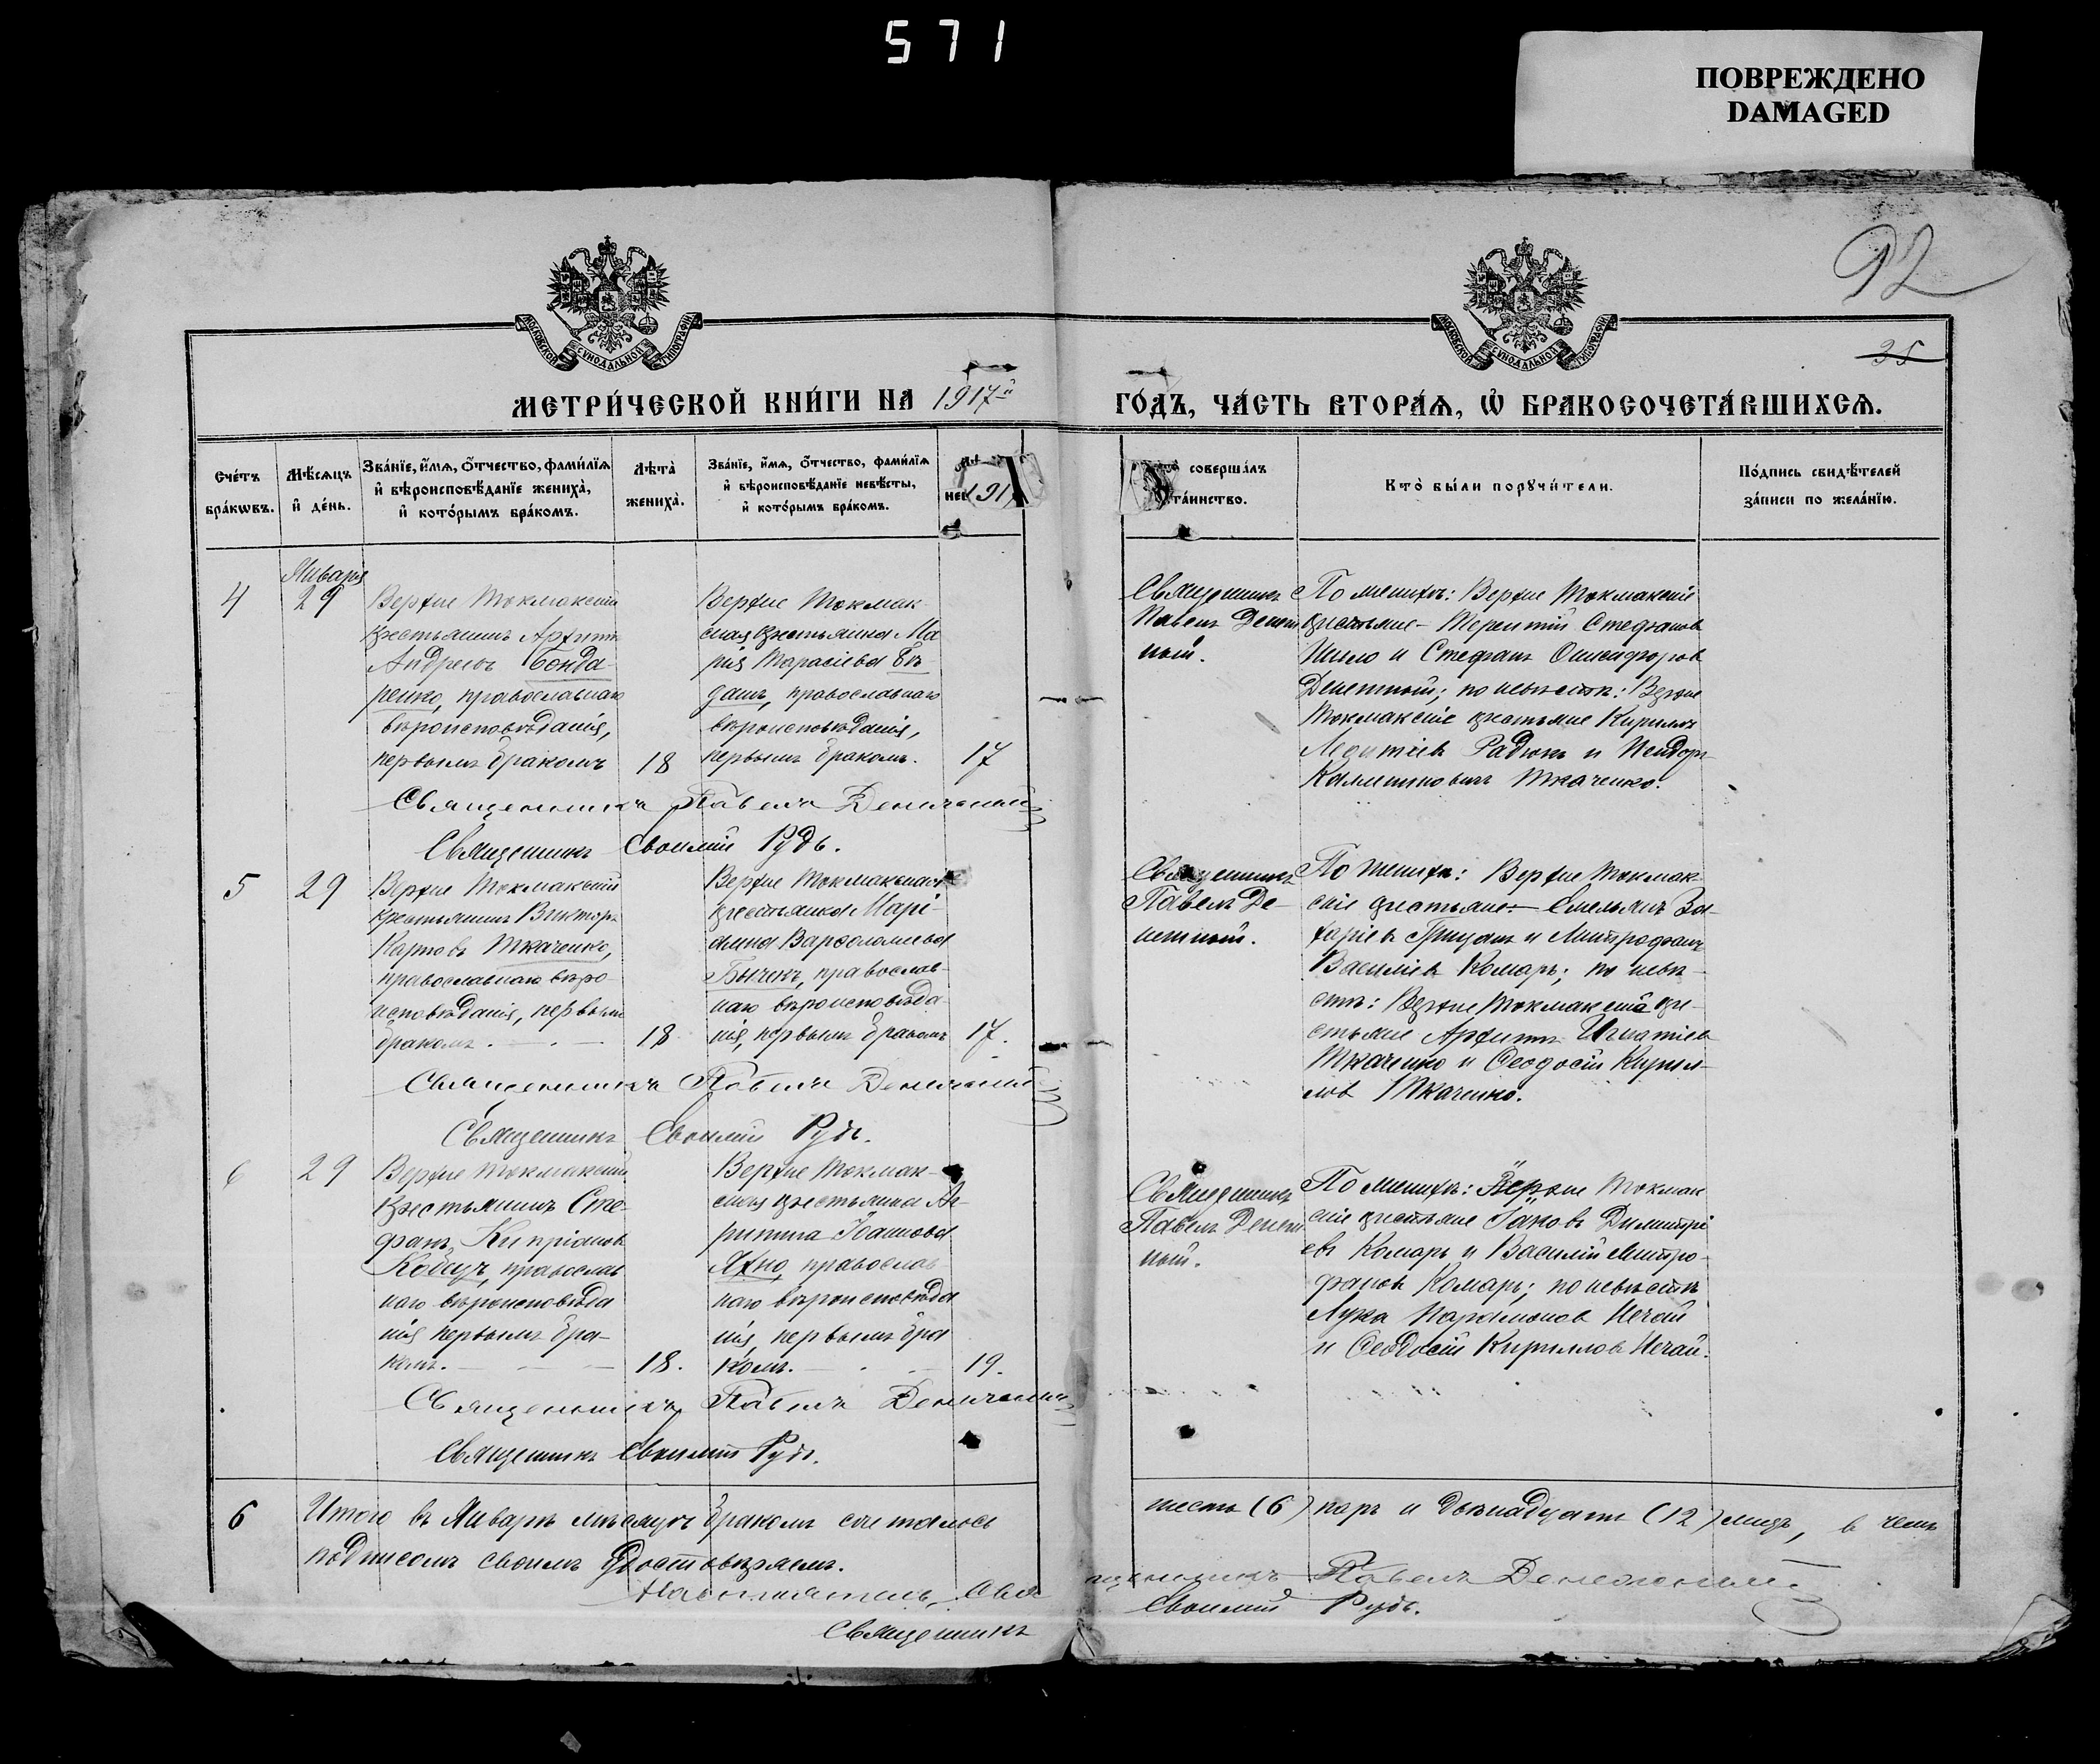 571
ПОВРЕЖДЕНО
DAMAGED
92
35
МОСКОВСКОЙ СѴНОДАЛЬНОЙ ТИПОГРАФІИ
МОСКОВСКОЙ СѴНОДАЛЬНОЙ ТИПОГРАФІИ
МЕТРИ́ЧЕСКОЙ КНИ́ГИ НА 1917й ГО́ДЪ, ЧА́СТЬ ВТОРА́Ѧ, Ѽ БРАКОСОЧЕТА́ВШИХСѦ.
Сче́тъ бра́кѡвъ.
Мѣ́сѧцъ и҆ де́нь.
Зва́нїе, и҆́мѧ, ѻ҆́тчество, фами́лїѧ
и҆ вѣроисповѣ́данїе жениха̀,
и҆ кото́рымъ бра́комъ.
Лѣта̀ жениха̀.
Зва́нїе, и҆́мѧ, ѻ҆́тчество, фами́лїѧ
и҆ вѣроисповѣ́данїе невѣ́сты,
и҆ кото́рымъ бра́комъ.
191
соверша́лъ
та́инство.
Кто̀ бы́ли порꙋчи́тели.
По́дпись свидѣ́телей
за́писи по жела́нїю.
4
Января
29
Верхне Токмакскій
крестьянинъ Архипъ
Андреевъ Бонда-
ренко, православнаго
вѣроисповѣданія,
первымъ бракомъ
18
Верхне Токмак-
ская крестьянка Ма
рія Тарасіева
православнаго
вѣроисповѣданія,
первымъ бракомъ.
17
Священникъ
Павелъ
ный.
По женихѣ: Верхне Токмакскіе
крестьяне - Терентій Стефановъ
Шило и Стефанъ Онисифоровъ
по невѣстѣ: Верхне
Токмакскіе крестьяне Кириллъ
Радюкъ и
Ткаченко.
Священникъ Павелъ
Священникъ Евсилій Рудь.
5
29
Верхне Токмакскій
крестьянинъ Викторъ
Карповъ Ткаченко,
православнаго вѣро-
исповѣданія, первымъ
бракомъ.
18
Верхне Токмакская
крестьянка Марі-
анна Варѳоломеева
Бычекъ, православ-
наго вѣроисповѣда-
нія, первымъ бракомъ
17.
Священникъ
Павелъ Де-
По женихѣ: Верхне Токмак-
скіе крестьяне: Емельянъ За-
харіевъ Грицанъ и Митрофанъ
Василіевъ Комаръ; по невѣ-
стѣ: Верхне Токмакскіе кре-
стьяне Архипъ Игнатіевъ
Ткаченко и Ѳеодосій Кирил-
ловъ Ткаченко.
Священникъ Павелъ
Священникъ Евсилій Рудь.
6
29
Верхне Токмакскій
крестьянинъ Сте-
фанъ Кипріановъ
Кобецъ, православ
наго вѣроисповѣда
нія первымъ бра-
комъ.
18.
Верхне Токмак-
ская крестьянка Аг-
рипина Іоаннова
Яхно, православ
наго вѣроисповѣда
нія, первымъ бра
комъ.
19.
Священникъ
Павелъ
ный.
По женихѣ: Верхне Токмак
скіе крестьяне Іаковъ Димитрі
евъ Комаръ и Василій Митро-
фановъ Комаръ; по невѣстѣ
Лука Парамоновъ Нечай
и Ѳеодосій Кирилловъ Нечай.
Священникъ Павелъ
Священникъ Евсилій Рудь.
6
Итого въ Январѣ мѣсяцѣ бракомъ сочталось шесть (6) паръ и двѣнадцать (12) лицъ, въ чемъ
подписомъ своимъ удостовѣряемъ.
Настоятель, Священникъ Павелъ
Священникъ Евсилій Рудь.